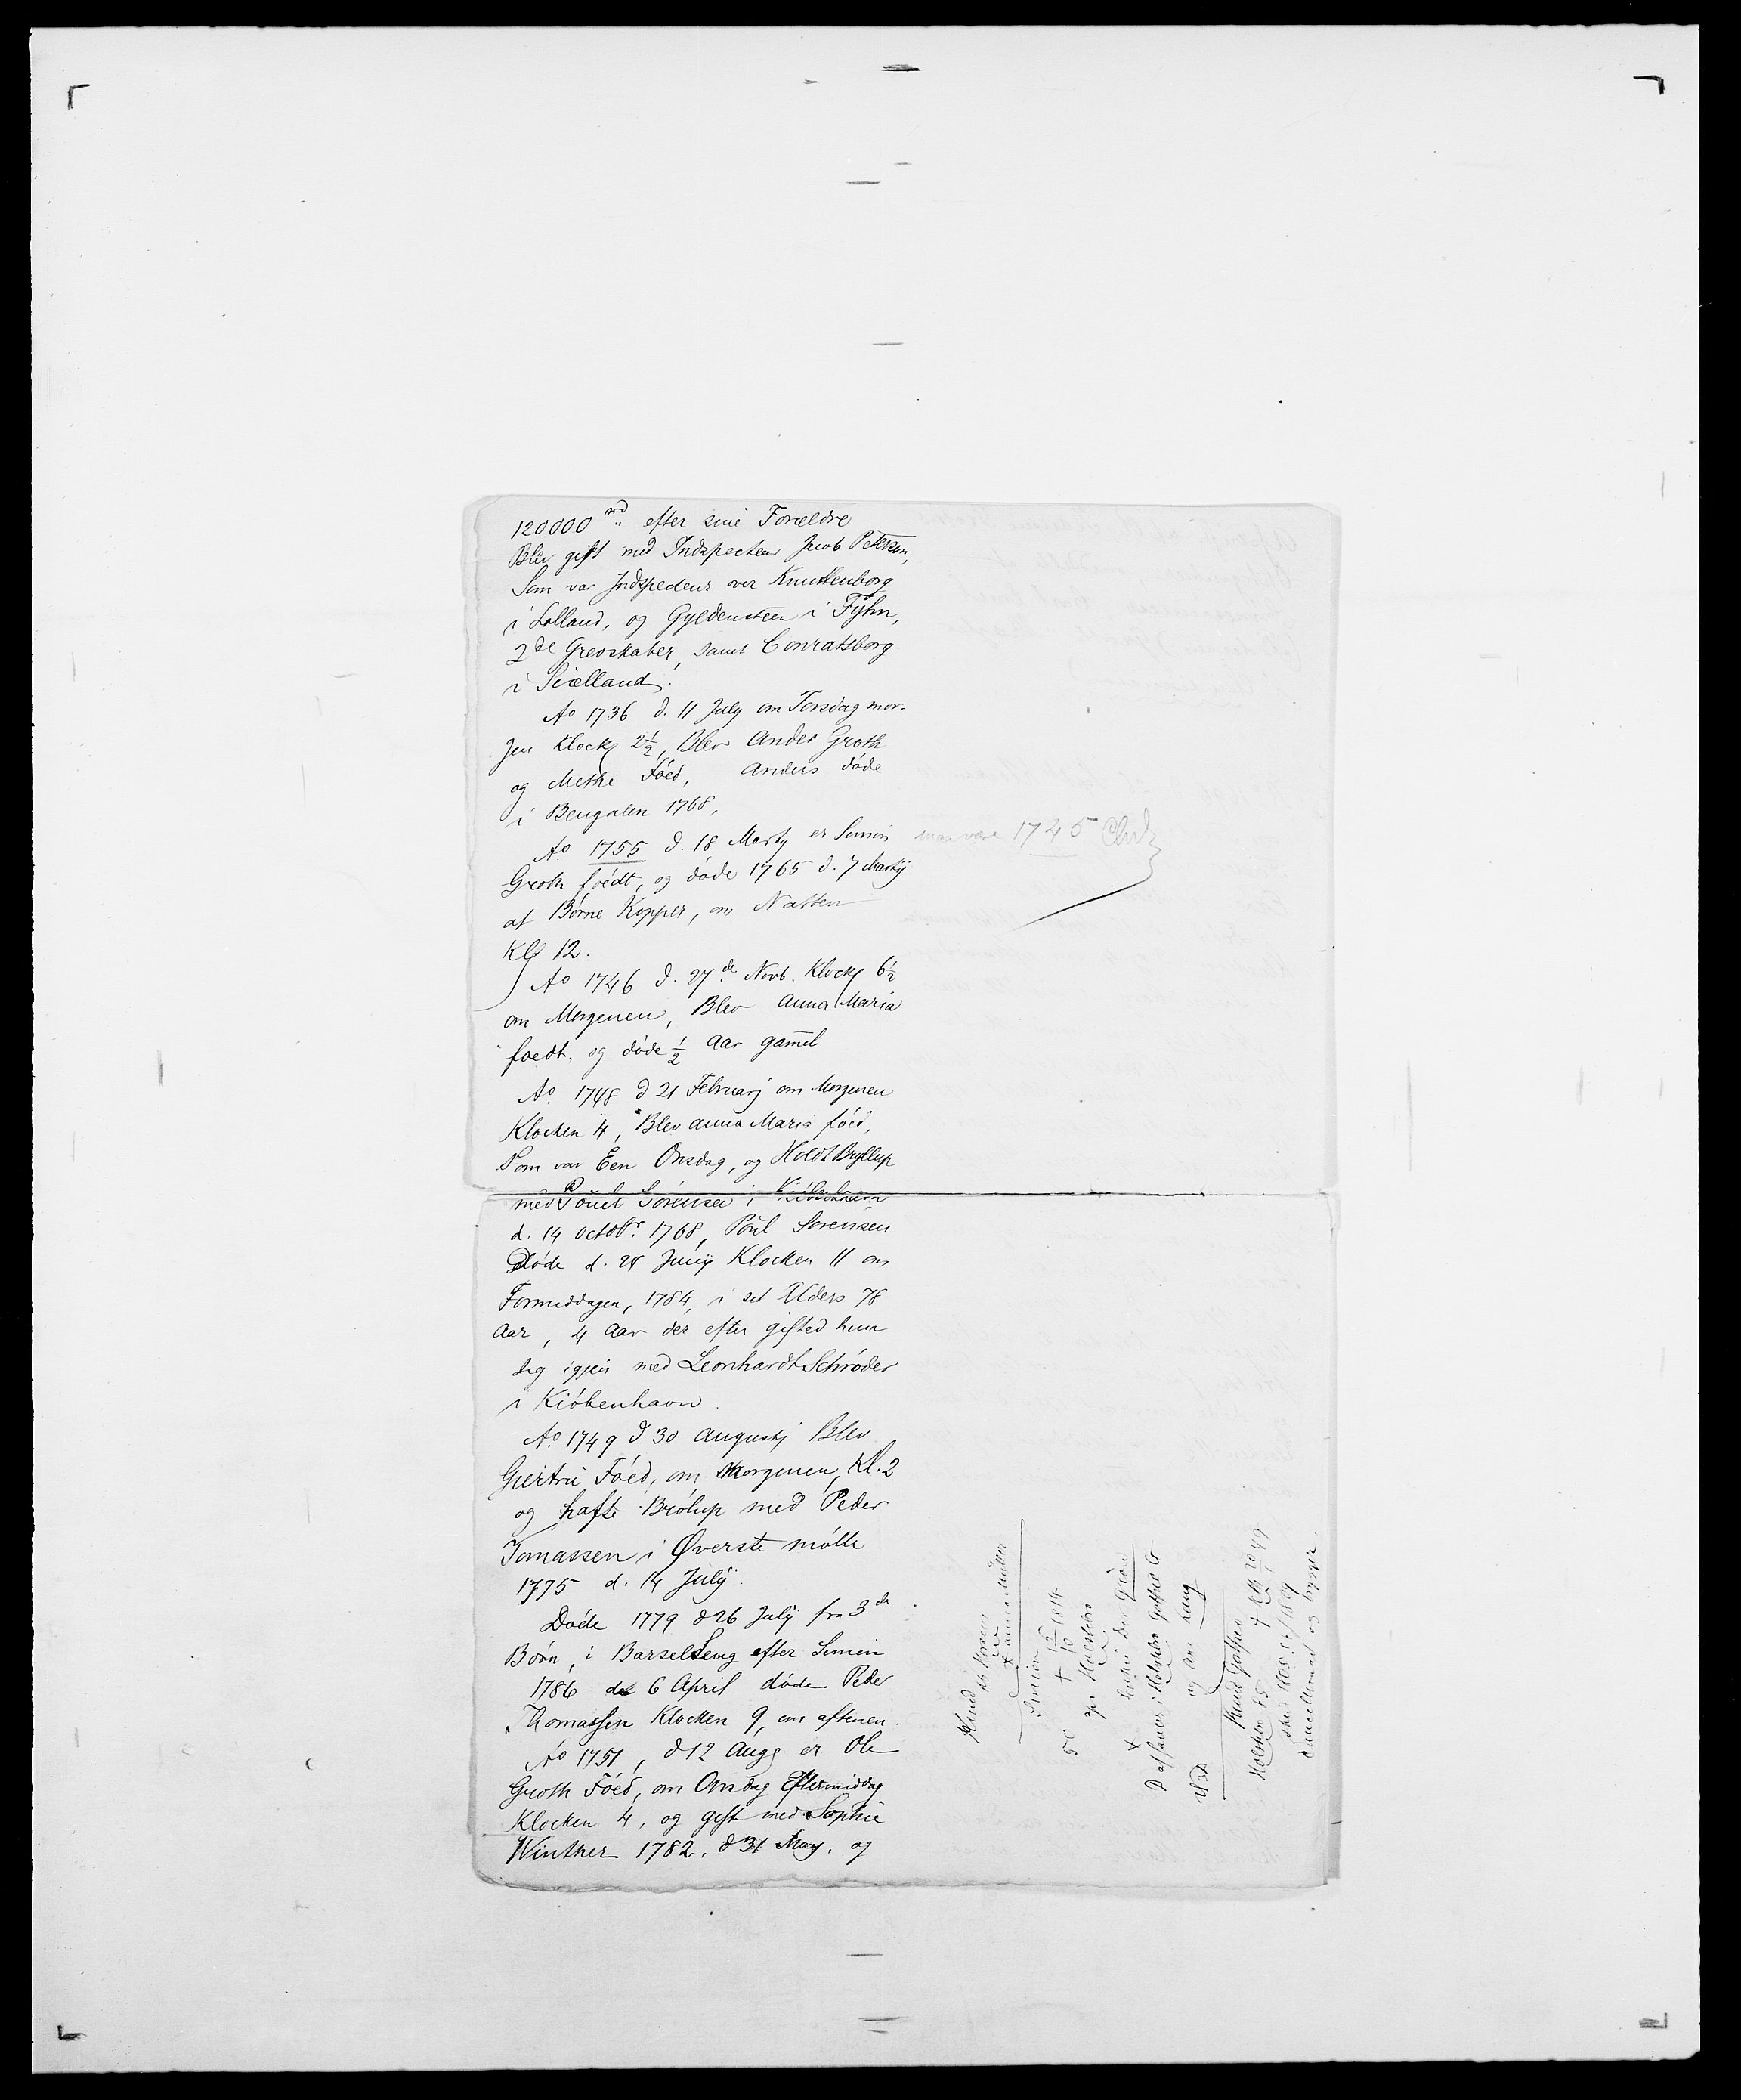 120000 rd. efter sine Forældre
Blev gift med Indspecteur Jacob Petersen,
Som var Indspecteur over Knuttenborg
i Lolland, og Gyldensteen i Fÿhn,
2de Grevskaber, samt Conratsborg
i Siælland.
Ao 1736 d. 11 July om Torsdag mor-
gen Klock 2½, Blev Andes Groth
og Methe Föed, Anders döde
i Bengalen 1768,
Ao. 1755 d. 18 Marty er Simon
maa være 1745
Groth föedt, og döde 1765 d. 7 Martij
af Börne Kopper, om Natten
Kl 12.
Ao 1746 d. 27de Novb. Klock 6½
om Morgenen, Blev Anna Maria
foedt, og döde ½ Aar gamel
Ao. 1748 d 21 Februarj om Morgenen
Klocken 4, Blev Anna Maria föed,
Som var Een Onsdag, og Holdt Bryllup
med Pouel Sörensen i Kiöbenhavn
d. 14 octobr. 1768, Poul Sorensen
Döde d. 28 Junij Klocken 11 om
Formiddagen, 1784, i sit Alders 78
Aar, 4 Aar der efter gifted hun
sig igjen med Leonhardt Schröder
i Kiöbenhavn.
Ao. 1749 d 30 Augustj Blev
Giertru Föed, om Morgenen, Kl. 2
og hafte Brölup med Peder
Tomassen i Øverste mölle
1775 d. 14 Julÿ.
Döde 1779 d 26 Julÿ fra 3de
Börn, i Barselseng efter Simon
1786 d 6 April döde Peder
Thomassen Klocken 9, om aftenen.
Ao 1751, d 12 Aug er Ole
Groth Föed, om Onsdag Eftermiddag
Klocken 4, og gift med Sophie
Winther 1782. d 31 May. og
Knud
Simon
† 12/10 1814
Holstebro
og Ane Lang
Knud Gotfred